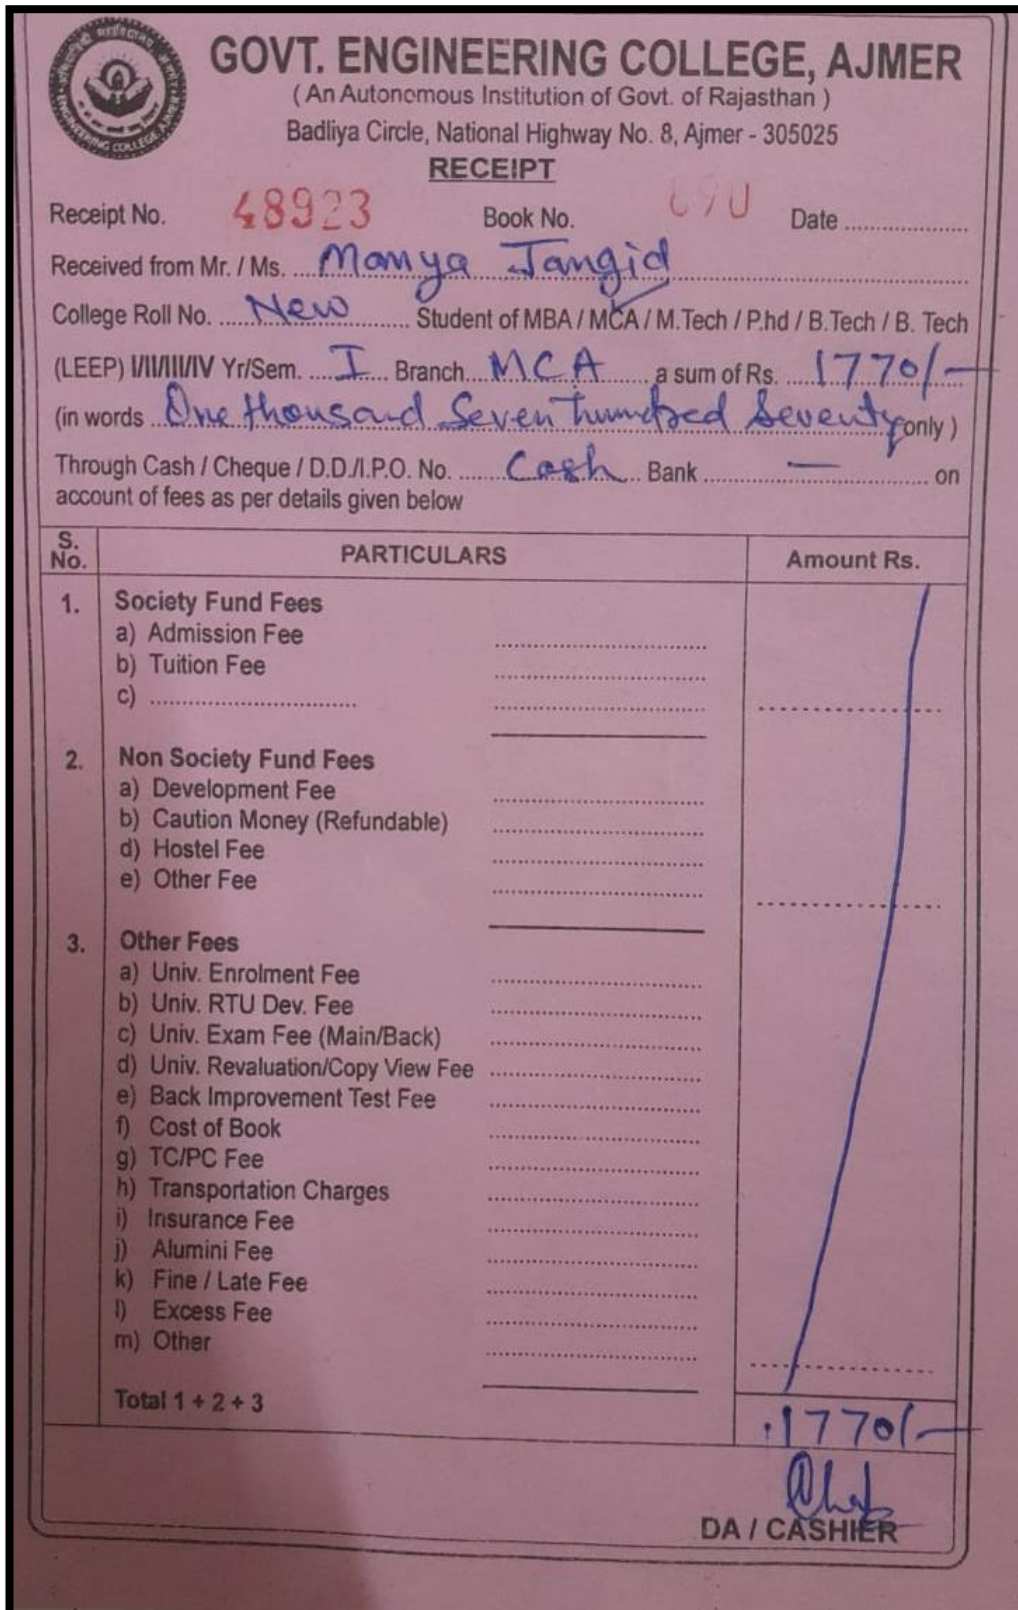 GOVT. ENGINEERING COLLEGE, AJMER
( An Autonomous Institution of Govt. of Rajasthan )
Badliya Circle, National Highway No. 8, Ajmer - 305025
RECEIPT
Receipt No. 48923 Book No. 690 Date ....................
Received from Mr. / Ms. Manya Jangid
College Roll No. New Student of MBA / MCA / M.Tech / P.hd / B.Tech / B. Tech
(LEEP) I/II/III/IV Yr/Sem. I Branch MCA a sum of Rs. 1770/-
(in words One thousand Seven hundred Seventy only )
Through Cash / Cheque / D.D./I.P.O. No. Cash Bank — on
account of fees as per details given below
S. No. PARTICULARS Amount Rs.
1. Society Fund Fees
a) Admission Fee
b) Tuition Fee
c) ................................
2. Non Society Fund Fees
a) Development Fee
b) Caution Money (Refundable)
d) Hostel Fee
e) Other Fee
3. Other Fees
a) Univ. Enrolment Fee
b) Univ. RTU Dev. Fee
c) Univ. Exam Fee (Main/Back)
d) Univ. Revaluation/Copy View Fee
e) Back Improvement Test Fee
f) Cost of Book
g) TC/PC Fee
h) Transportation Charges
i) Insurance Fee
j) Alumini Fee
k) Fine / Late Fee
l) Excess Fee
m) Other
Total 1 + 2 + 3 1770/-
DA / CASHIER